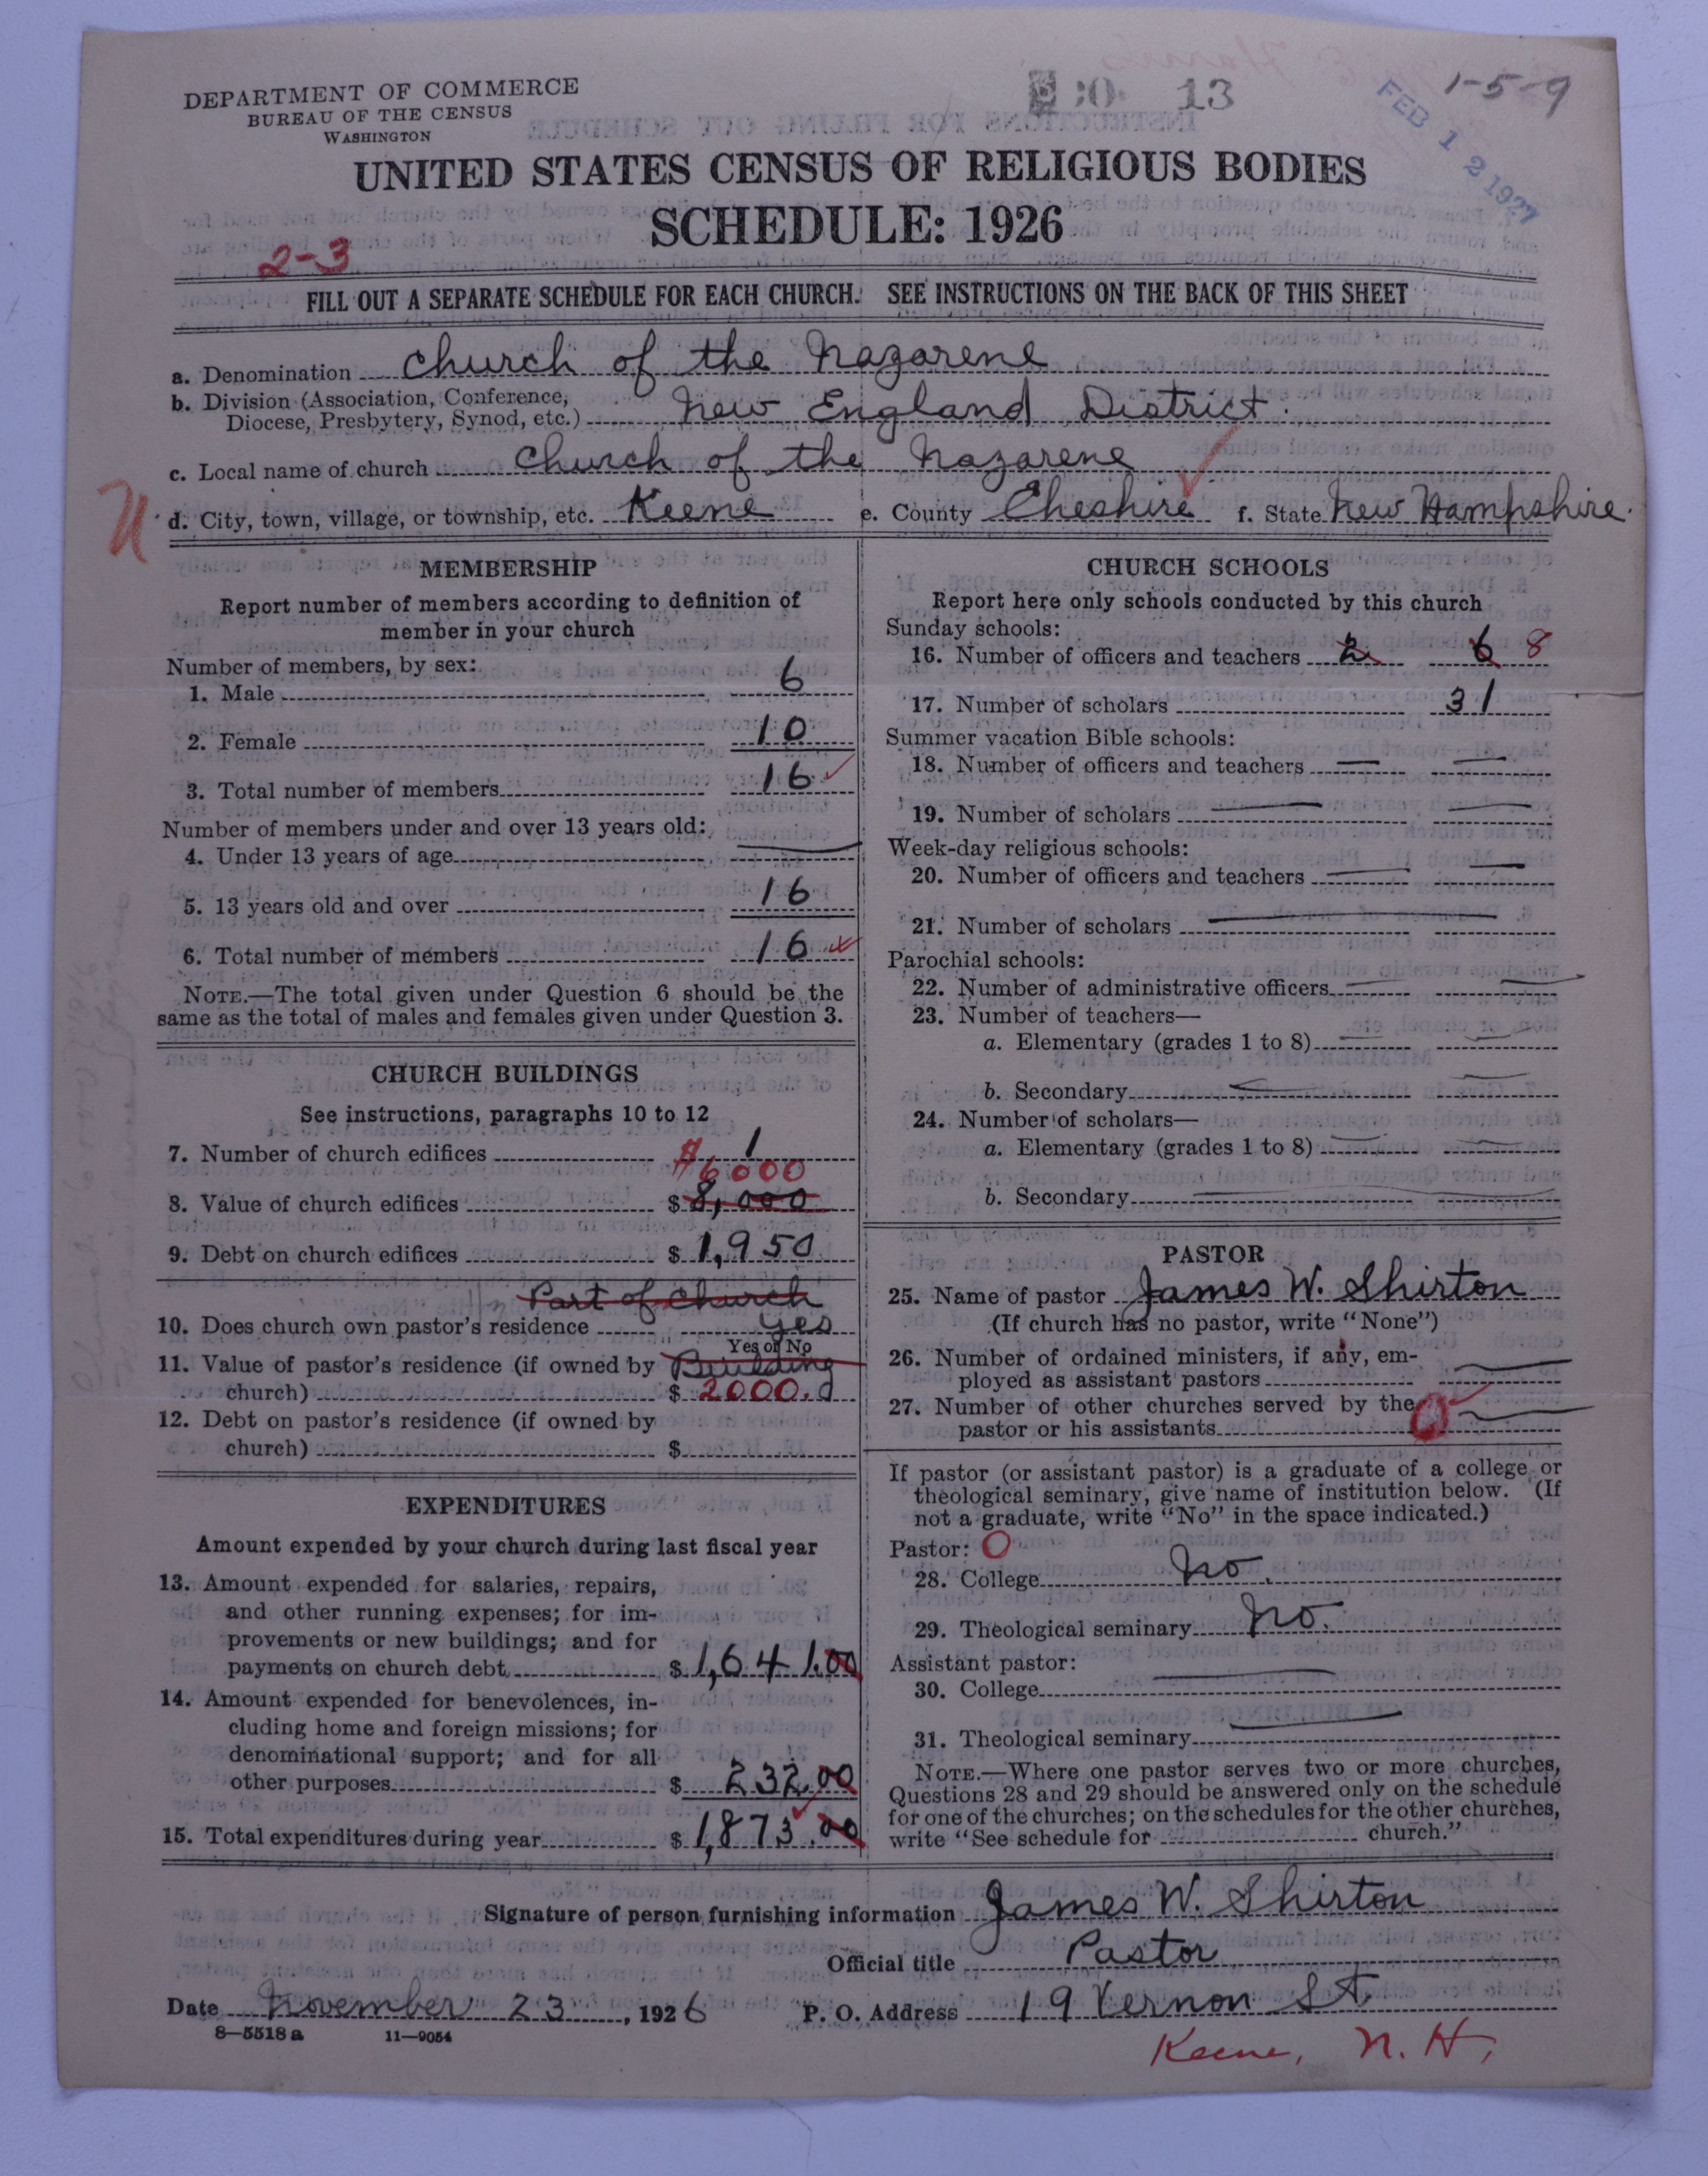 DEPARTMENT OF COMMERCE
BUREAU OF THE CENSUS
WASHINGTON
13
1-5-9
FEB 12 1927
UNITED STATES CENSUS OF RELIGIOUS BODIES
SCHEDULE: 1926
2-3
FILL OUT A SEPARATE SCHEDULE FOR EACH CHURCH. SEE INSTRUCTIONS ON THE BACK OF THIS SHEET
a. Denomination Church of the Nazarene
b. Division (Association, Conference,
Diocese, Presbytery, Synod, etc.) New England District.
c. Local name of church Church of the Nazarene
N
d. City, town, village, or township, etc. Keene e. County Cheshire f. State New Hampshire.
MEMBERSHIP
Report number of members according to definition of
member in your church
Number of members, by sex:
1. Male 6
2. Female 10
3. Total number of members 16
Number of members under and over 13 years old:
4. Under 13 years of age
5. 13 years old and over 16
6. Total number of members 16
NOTE.—The total given under Question 6 should be the
same as the total of males and females given under Question 3.
CHURCH BUILDINGS
See instructions, paragraphs 10 to 12
7. Number of church edifices 1
$6000
8. Value of church edifices $ 8,000
9. Debt on church edifices $ 1,950
Part of Church
10. Does church own pastor's residence yes
Yes or No
11. Value of pastor's residence (if owned by Building
church) $ 2000.0
12. Debt on pastor's residence (if owned by
church) $
EXPENDITURES
Amount expended by your church during last fiscal year
13. Amount expended for salaries, repairs,
and other running expenses; for im-
provements or new buildings; and for
payments on church debt $ 1,641.00
14. Amount expended for benevolences, in-
cluding home and foreign missions; for
denominational support; and for all
other purposes $ 232.00
15. Total expenditures during year $ 1,873.00
CHURCH SCHOOLS
Report here only schools conducted by this church
Sunday schools:
16. Number of officers and teachers 2 6 8
17. Number of scholars 31
Summer vacation Bible schools:
18. Number of officers and teachers
19. Number of scholars
Week-day religious schools:
20. Number of officers and teachers
21. Number of scholars
Parochial schools:
22. Number of administrative officers
23. Number of teachers—
a. Elementary (grades 1 to 8)
b. Secondary
24. Number of scholars—
a. Elementary (grades 1 to 8)
b. Secondary
PASTOR
25. Name of pastor James W. Shirton
(If church has no pastor, write "None")
26. Number of ordained ministers, if any, em-
ployed as assistant pastors
27. Number of other churches served by the
pastor or his assistants 0
If pastor (or assistant pastor) is a graduate of a college or
theological seminary, give name of institution below. (If
not a graduate, write "No" in the space indicated.)
Pastor: O
28. College No.
29. Theological seminary No.
Assistant pastor:
30. College
31. Theological seminary
NOTE.—Where one pastor serves two or more churches,
Questions 28 and 29 should be answered only on the schedule
for one of the churches; on the schedules for the other churches,
write "See schedule for church."
Signature of person furnishing information James W. Shirton
Official title Pastor
Date November 23, 1926 P. O. Address 19 Vernon St.
8-5518 a 11-9054
Keene, N. H.